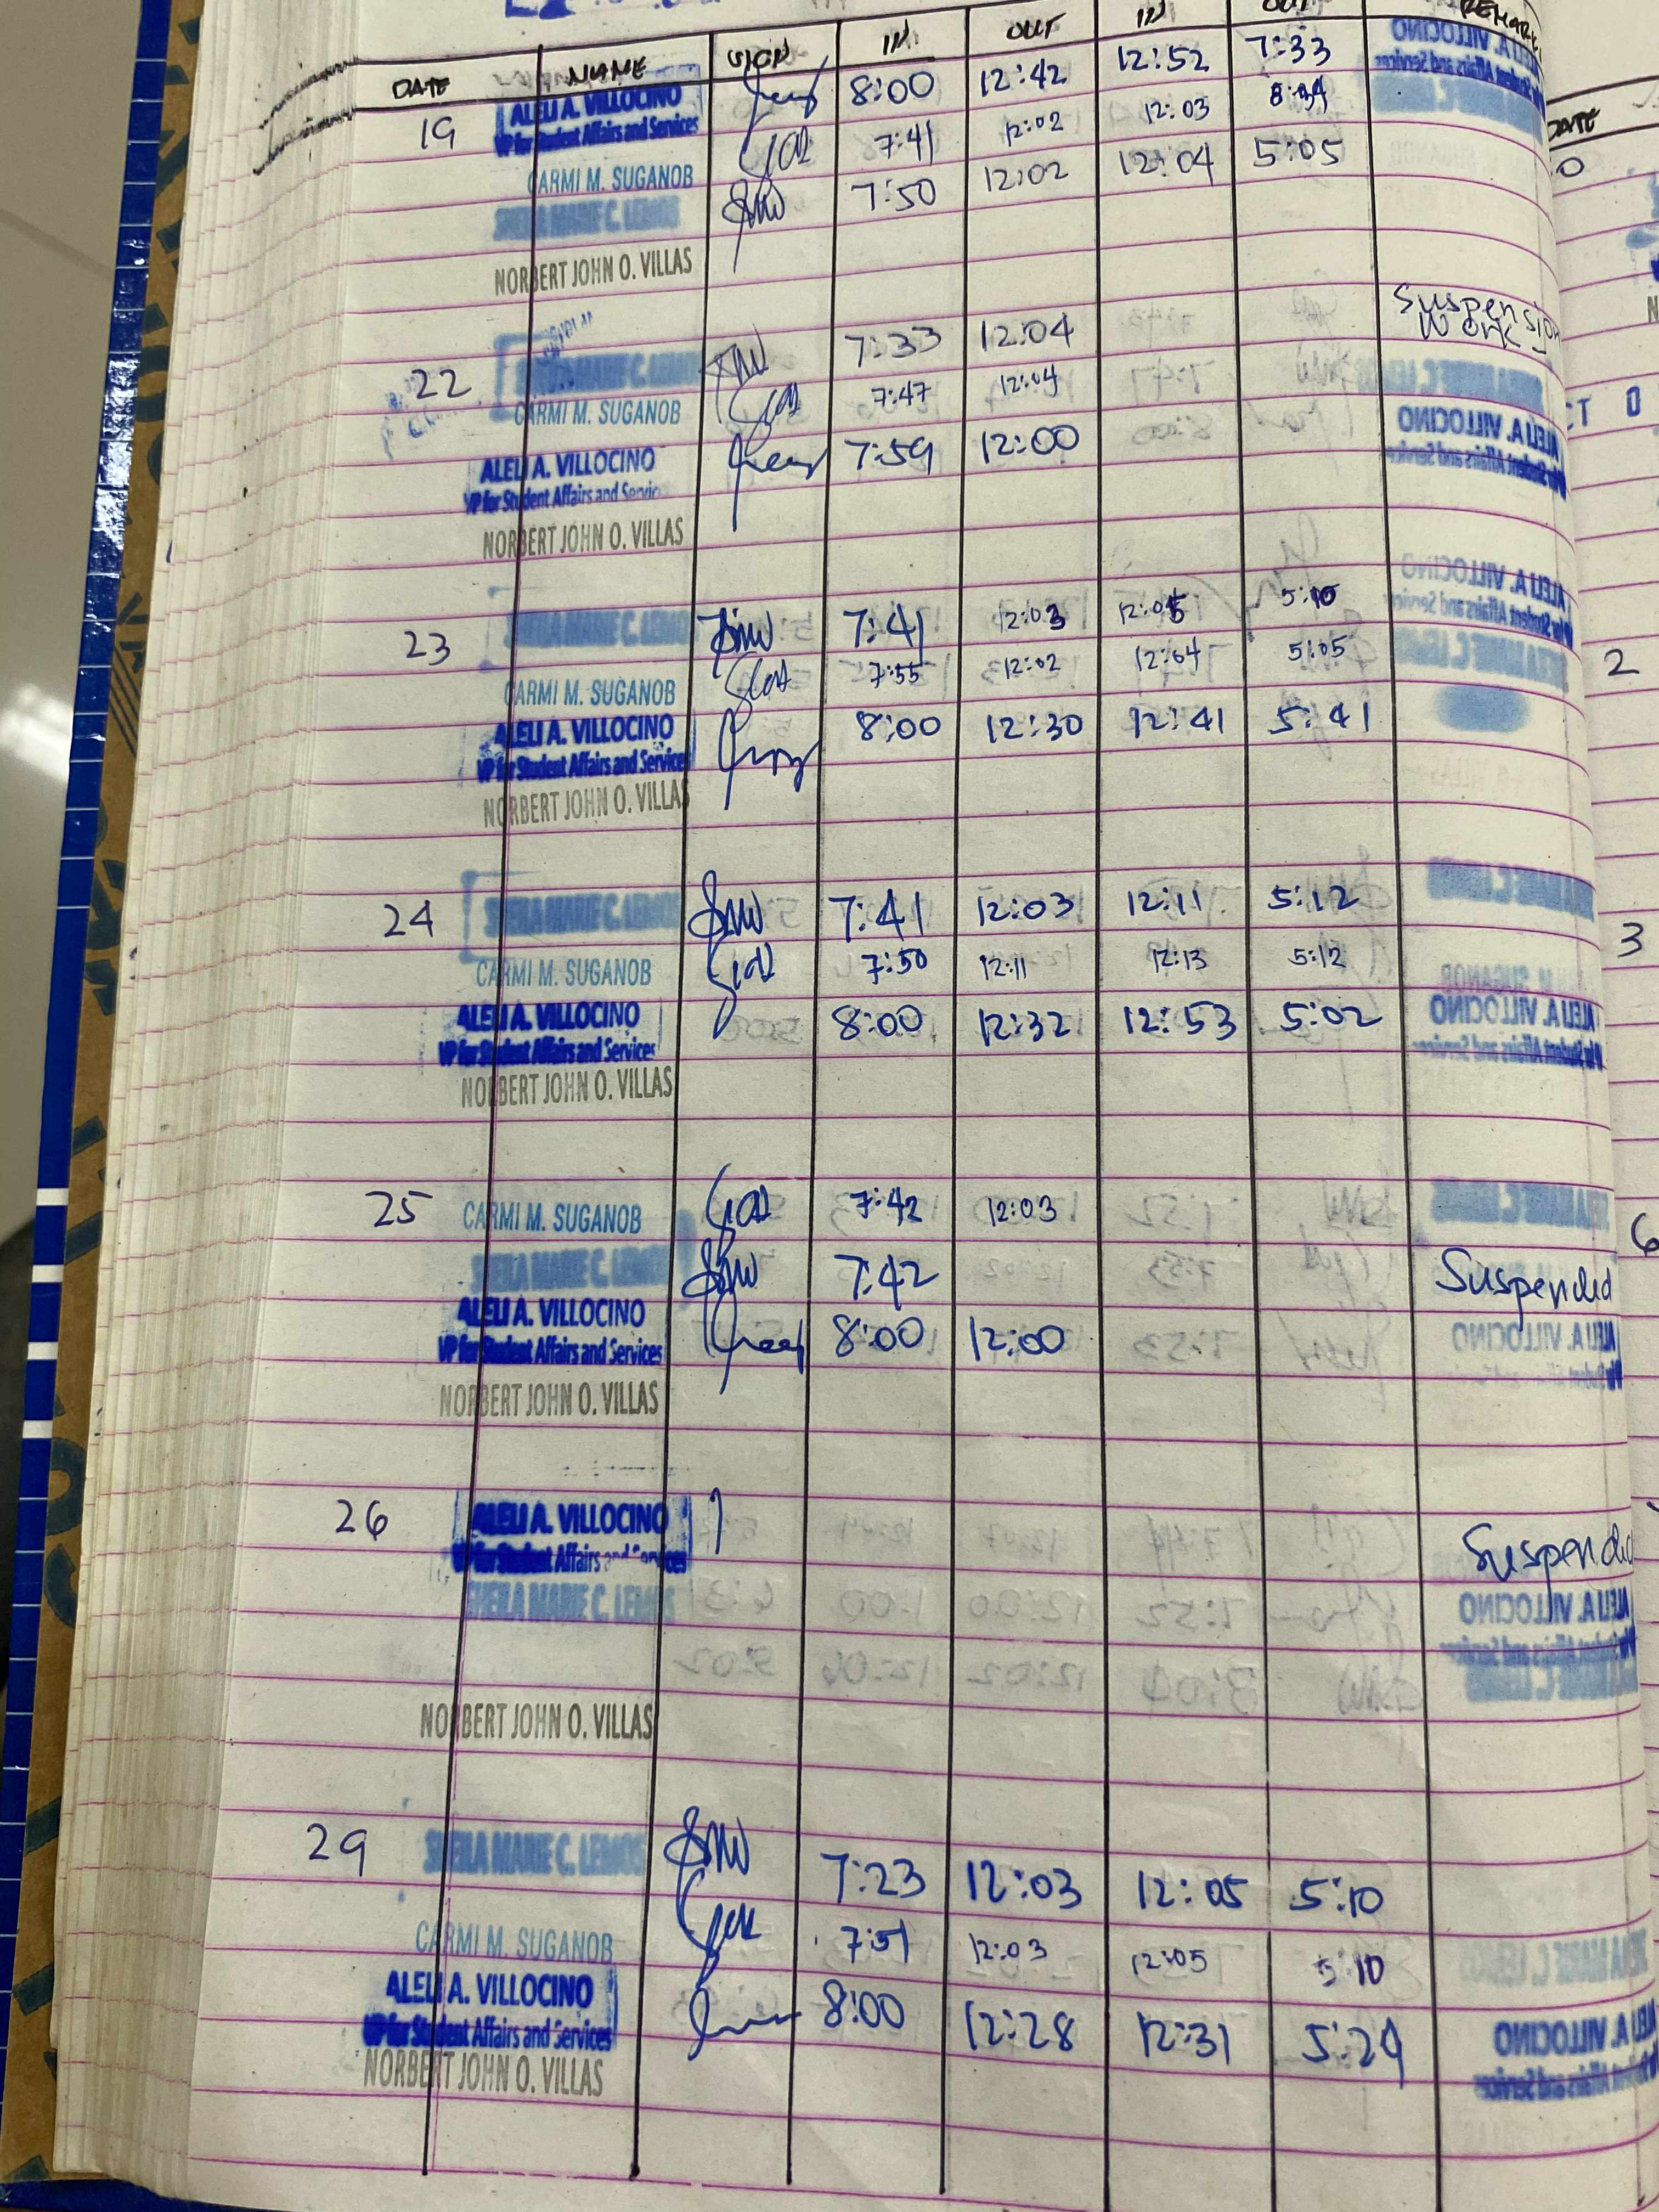 DATE NAME SIGN IN OUT IN OUT REMARK
19 ALELI A. VILLOCINO 8:00 12:42 12:52 7:33
VP for Student Affairs and Services
CARMI M. SUGANOB 7:41 12:02 12:03
SHEILA MARIE C. LEMOS 7:50 12:02 12:04 5:05
NORBERT JOHN O. VILLAS
Suspension
Work
22 SHEILA MARIE C. LEMOS 7:33 12:04
CARMI M. SUGANOB 7:47 12:04
ALELI A. VILLOCINO 7:59 12:00
VP for Student Affairs and Servic
NORBERT JOHN O. VILLAS
23 SHEILA MARIE C. LEMOS 7:41 12:03 12:05 5:10
CARMI M. SUGANOB 7:55 12:02 12:04 5:05
ALELI A. VILLOCINO 8:00 12:30 12:41 5:41
VP for Student Affairs and Services
NORBERT JOHN O. VILLAS
24 SHEILA MARIE C. LEMOS 7:41 12:03 12:11 5:12
CARMI M. SUGANOB 7:50 12:11 12:13 5:12
ALELI A. VILLOCINO 8:00 12:32 12:53 5:02
VP for Student Affairs and Services
NORBERT JOHN O. VILLAS
25 CARMI M. SUGANOB 7:42 12:03
SHEILA MARIE C. LEMOS 7:42 Suspended
ALELI A. VILLOCINO 8:00 12:00
VP for Student Affairs and Services
NORBERT JOHN O. VILLAS
26 ALELI A. VILLOCINO Suspended
VP for Student Affairs and Services
SHEILA MARIE C. LEMOS
NORBERT JOHN O. VILLAS
29 SHEILA MARIE C. LEMOS 7:23 12:03 12:05 5:10
CARMI M. SUGANOB 7:51 12:03 12:05 5:10
ALELI A. VILLOCINO 8:00 12:28 12:31 5:29
VP for Student Affairs and Services
NORBERT JOHN O. VILLAS
DATE
2
3
6